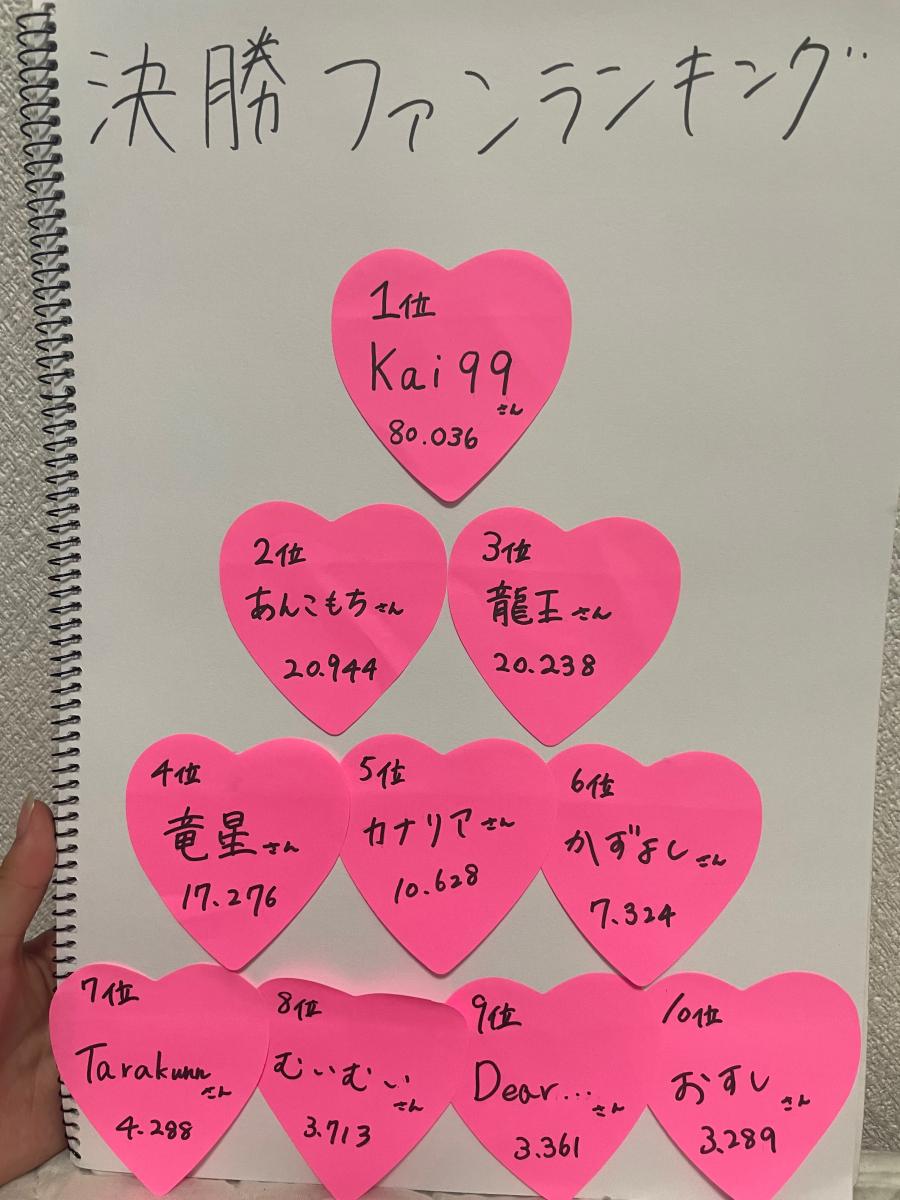 決勝ファンランキング
1位
Kai99
さん
80.036
2位
あんこもちさん
20.944
3位
龍王さん
20.238
4位
竜星さん
17.276
5位
カナリアさん
10.628
6位
かずよしさん
7.324
7位
Tarakunn
さん
4.288
8位
むぃむぃ
さん
3.713
9位
Dear...さん
3.361
10位
おすし
さん
3.289